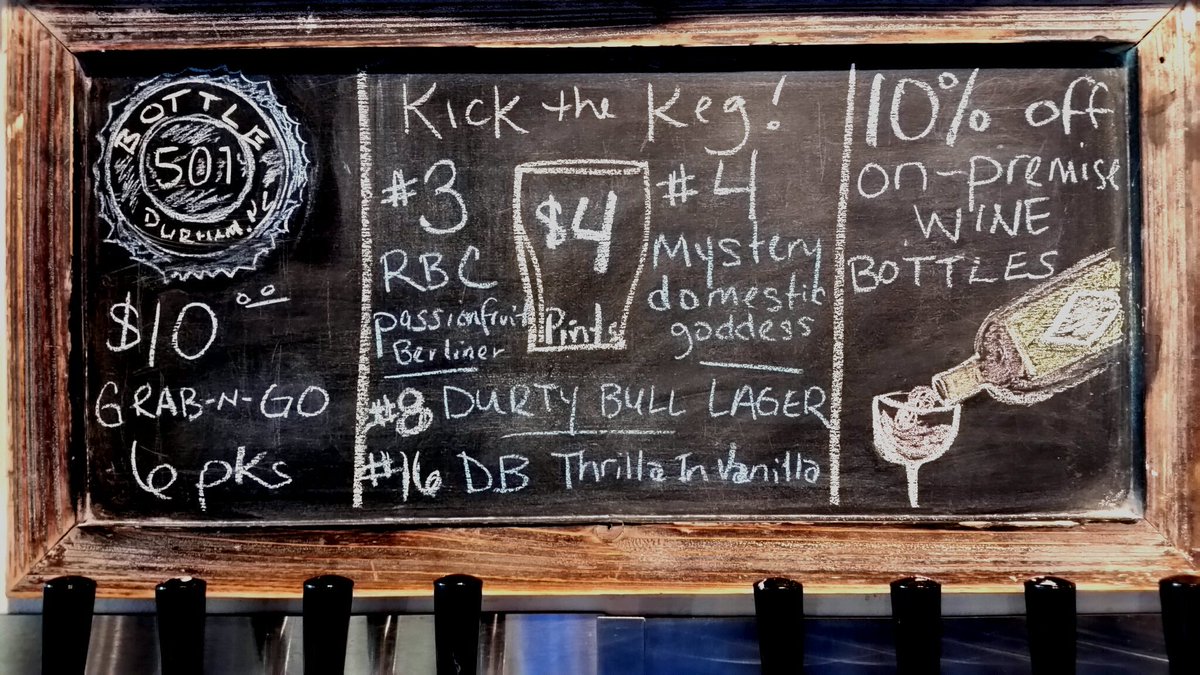 BOTTLE
501
DURHAM, NC
$10 00
GRAB-N-GO
6 pks
Kick the Keg!
#3
RBC
passionfruit
Berliner
$4
Pints
#4
Mystery
domestic
goddess
#8 DURTY BULL LAGER
#16 DB Thrilla In Vanilla
10% off
on-premise
WINE
BOTTLES